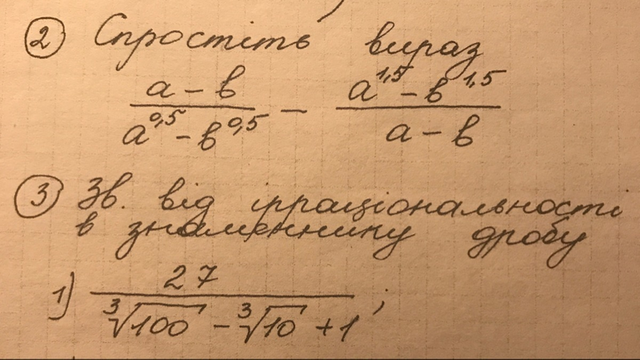 ② Спростіть вираз
(a - b)/(a^0,5 - b^0,5) - (a^1,5 - b^1,5)/(a - b)
③ Зв. від ірраціональності
в знаменнику дробу
1) 27/(∛100 - ∛10 + 1);